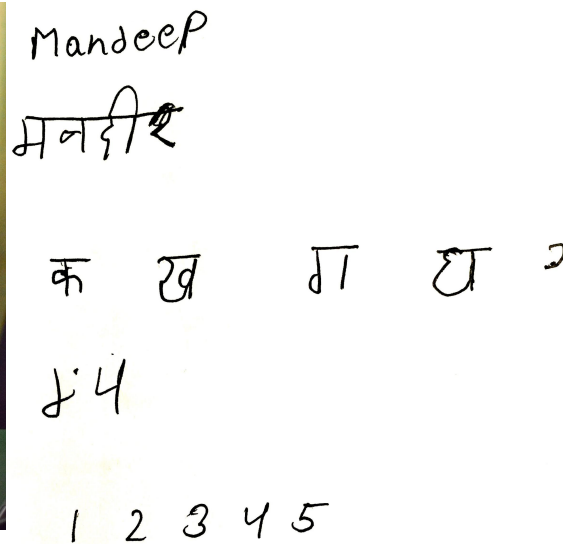 Mandeep
मनदीर
क ख ग घ
1 2 3 4 5